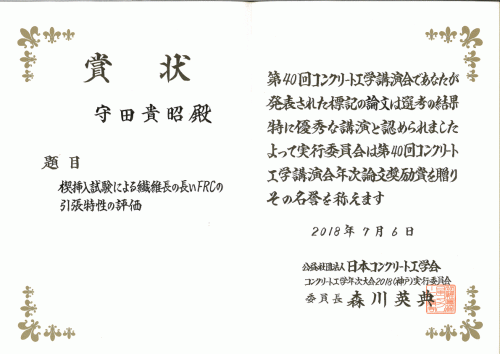 賞状
守田貴昭殿
題目
楔挿入試験による繊維長の長いFRCの
引張特性の評価
第40回コンクリート工学講演会であなたが
発表された標記の論文は選考の結果
特に優秀な講演と認められました
よって実行委員会は第40回コンクリート
工学講演会年次論文奨励賞を贈り
その名誉を称えます
2018年7月6日
公益社団法人 日本コンクリート工学会
コンクリート工学年次大会2018(神戸)実行委員会
委員長 森川英典